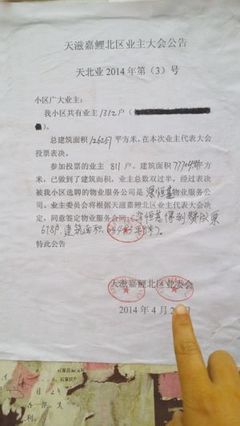 天滋嘉鲤北区业主大会公告
天北业 2014 年第（3）号
小区广大业主：
我小区共有业主1312户（
）。
总建筑面积126217平方米，在本次业主代表大会
投票表决。
参加投票的业主 811 户，建筑面积 平方
米，已做到了建筑面积，业主总数双过半，经过表决
被我小区选聘的物业服务公司是 物业服务公
司。业主委员会将根据天滋嘉鲤北区业主代表大会决
定，同意签定物业服务合同。 得到赞成票
678户，建筑面积
特此公告
天滋嘉鲤北区业主大会
2014 年 4 月 2 日